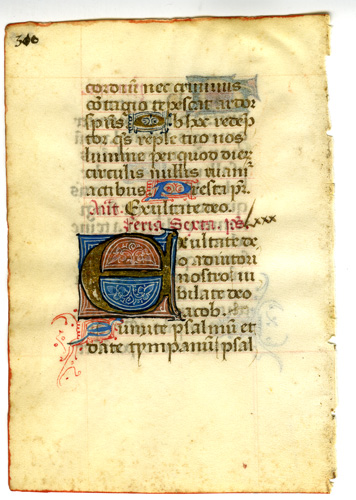 306
cordiũ nec criminis
cõtagio tepescat ardor
sp̃us O b̃lxc redẽp
tor q̃s reple tuo nos
lumine per quod dier
circulis nullis ruam̃
actibus Presta p̃r.
Añt. Exultate deo.
Feria Sexta. p̃s lxxx
Exultate de
o adiutori
nostro iu
bilate deo
iacob.
Sumite psalmũ et
date tympanũ psal